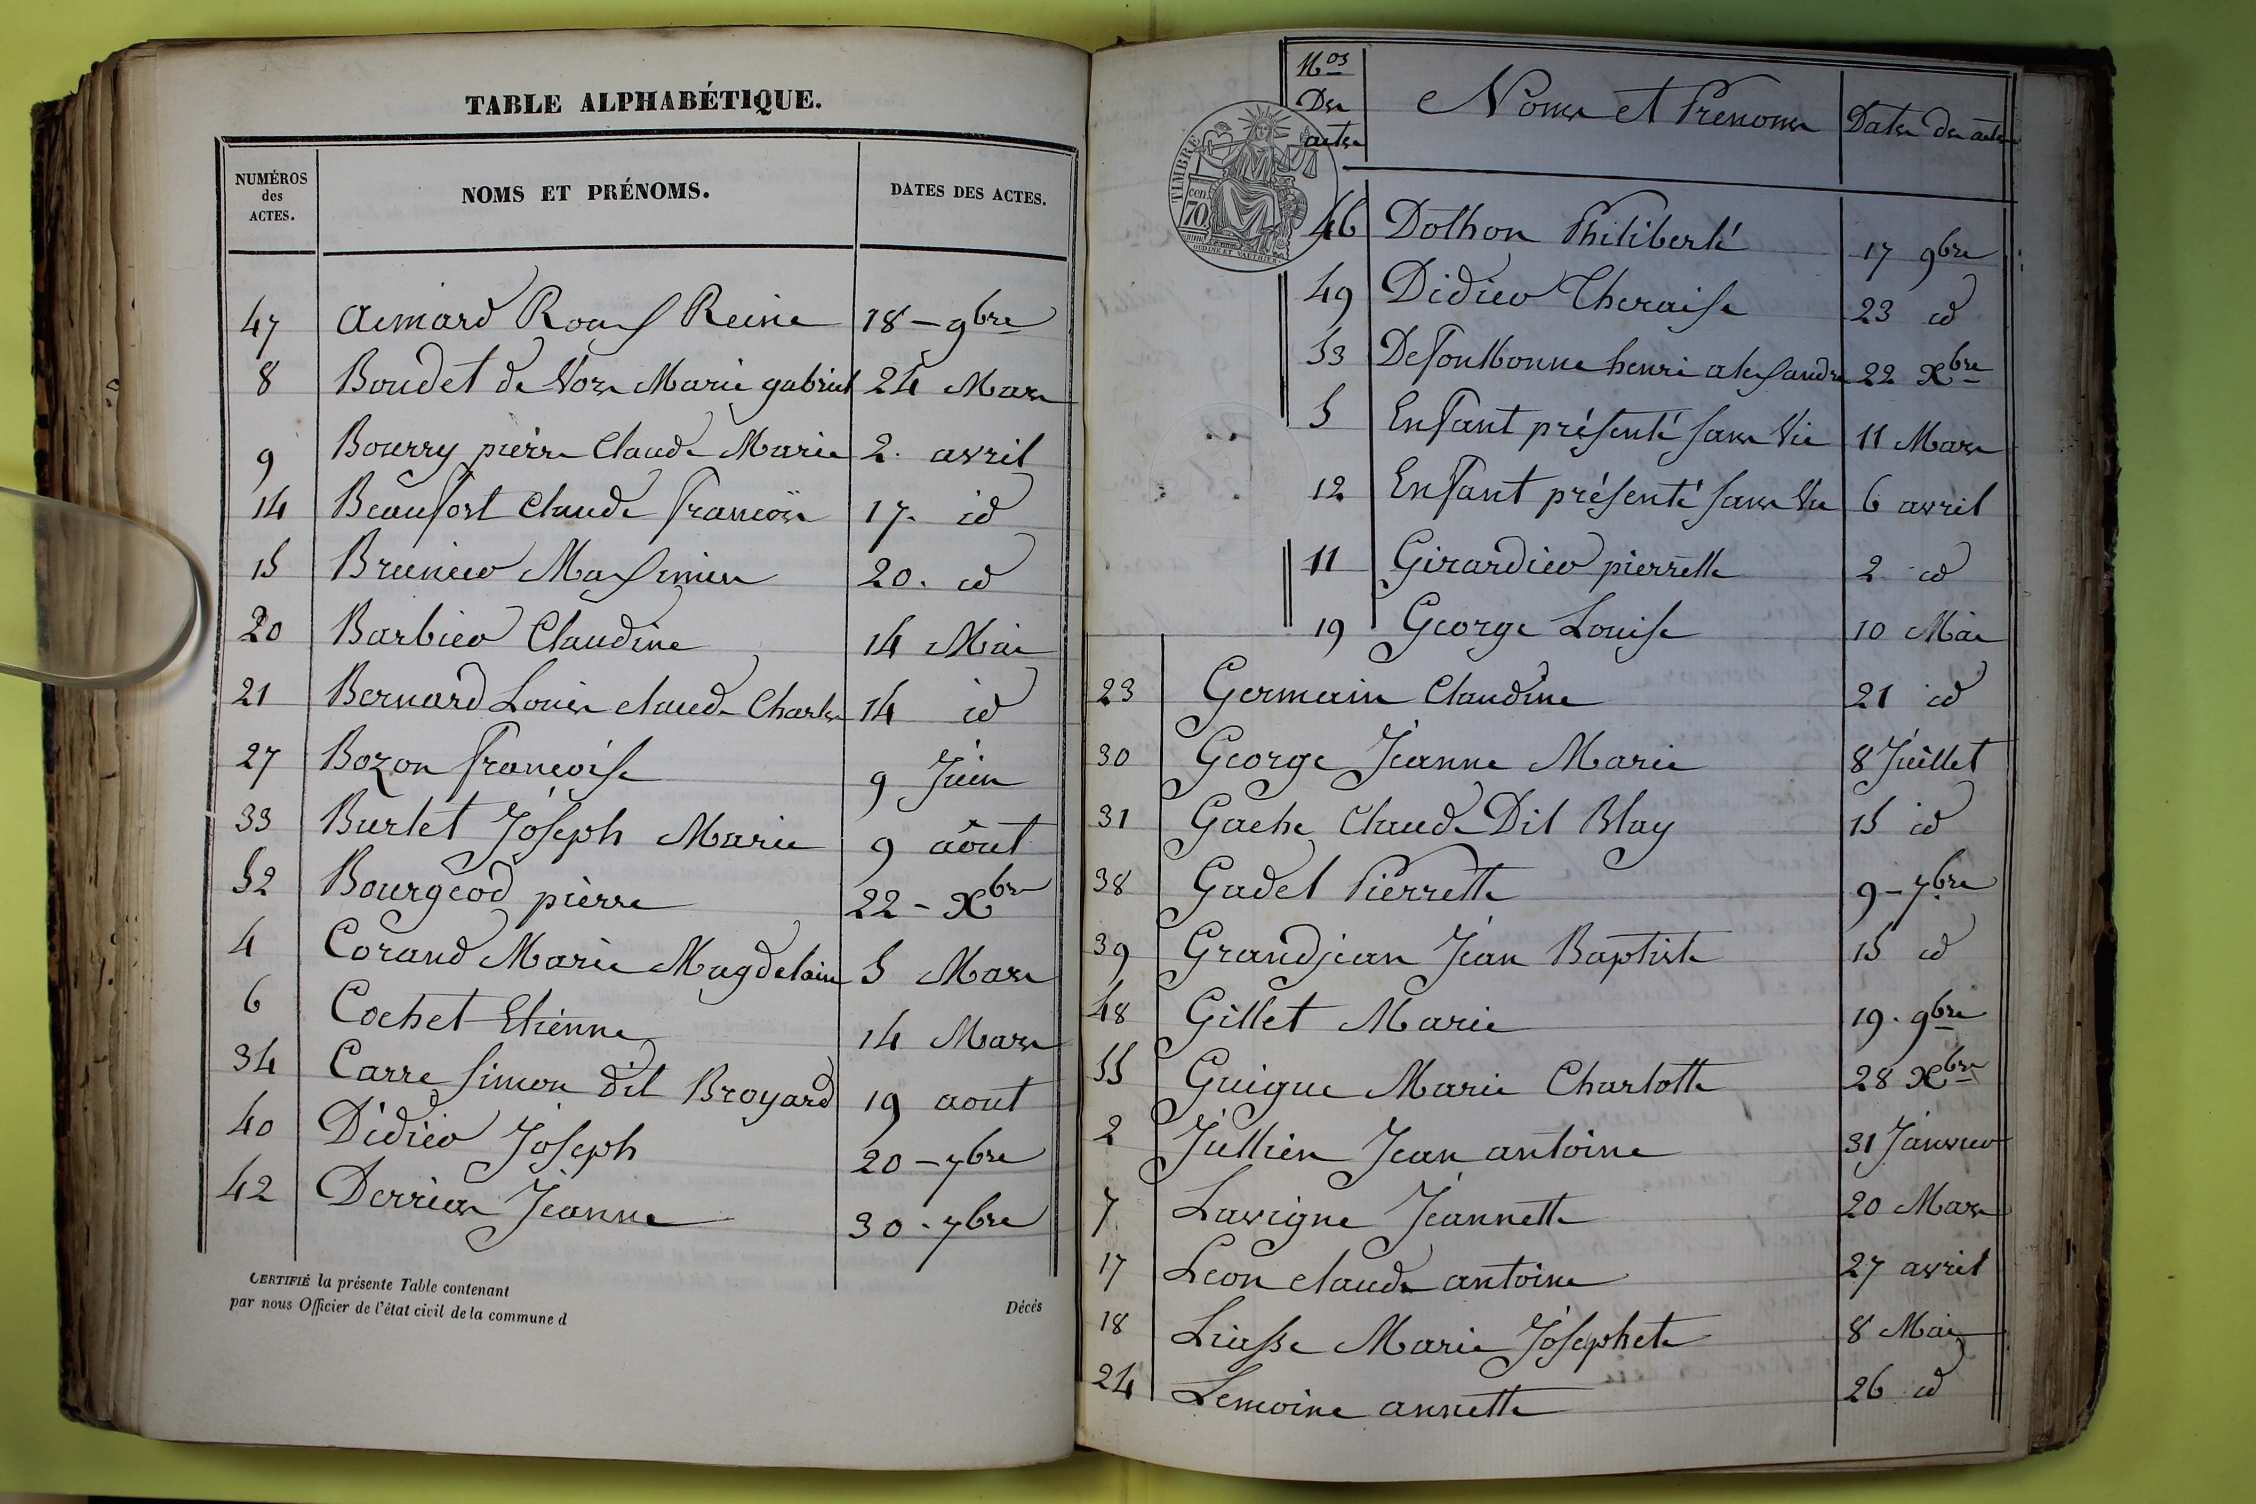 TABLE ALPHABÉTIQUE.
NUMÉROS des ACTES. NOMS ET PRÉNOMS. DATES DES ACTES.
47 aimard Roux Reine 18 - 9bre
8 Boudet de Vors Marie gabriel 24 Mars
9 Bourry pièrre Claude Marie 2. avril
14 Beaufort Claude françois 17. id
15 Brunier Maximin 20. id
20 Barbier Claudine 14 Mai
21 Bernard Louis claude Charles 14 id
27 Bozon françoise 9 Juin
33 Burlet Joseph Marie 9 août
52 Bourgeod pièrre 22 - Xbre
4 Corand Marie Magdelaine 5 Mars
6 Cochet Etiènne 14 Mars
34 Carre Simon dit Broyard 19 aout
40 Didier Joseph 20 - 7bre
42 Derrias Jeanne 30 - 7bre
CERTIFIÉ la présente Table contenant
par nous Officier de l'état civil de la commune d Décés
Nos Des actes Noms et Prenoms Dates des actes
TIMBRE
70
46 Dothon Philiberté 17 9bre
49 Didier Theraise 23 id
53 Defontbonne henri alexandre 22 Xbre
5 Enfant présenté sans Vie 11 Mars
12 Enfant présenté sans Vie 6 avril
11 Girardier pierrette 2 id
19 George Louise 10 Mai
23 Germain Claudine 21 id
30 George Jeanne Marie 8 Juillet
31 Gache Claude Dit Blay 15 id
38 Gadel Pierrette 9 - 7bre
39 Grandjean Jean Baptiste 15 id
48 Gillet Marie 19. 9bre
55 Guigue Marie Charlotte 28 Xbre
2 Jullien Jean antoine 31 Janvier
7 Lavigne Jeannette 20 Mars
17 Leon claude antoine 27 avril
18 Liasse Marie Josephete 8 Mai
24 Lemoine annette 26 id